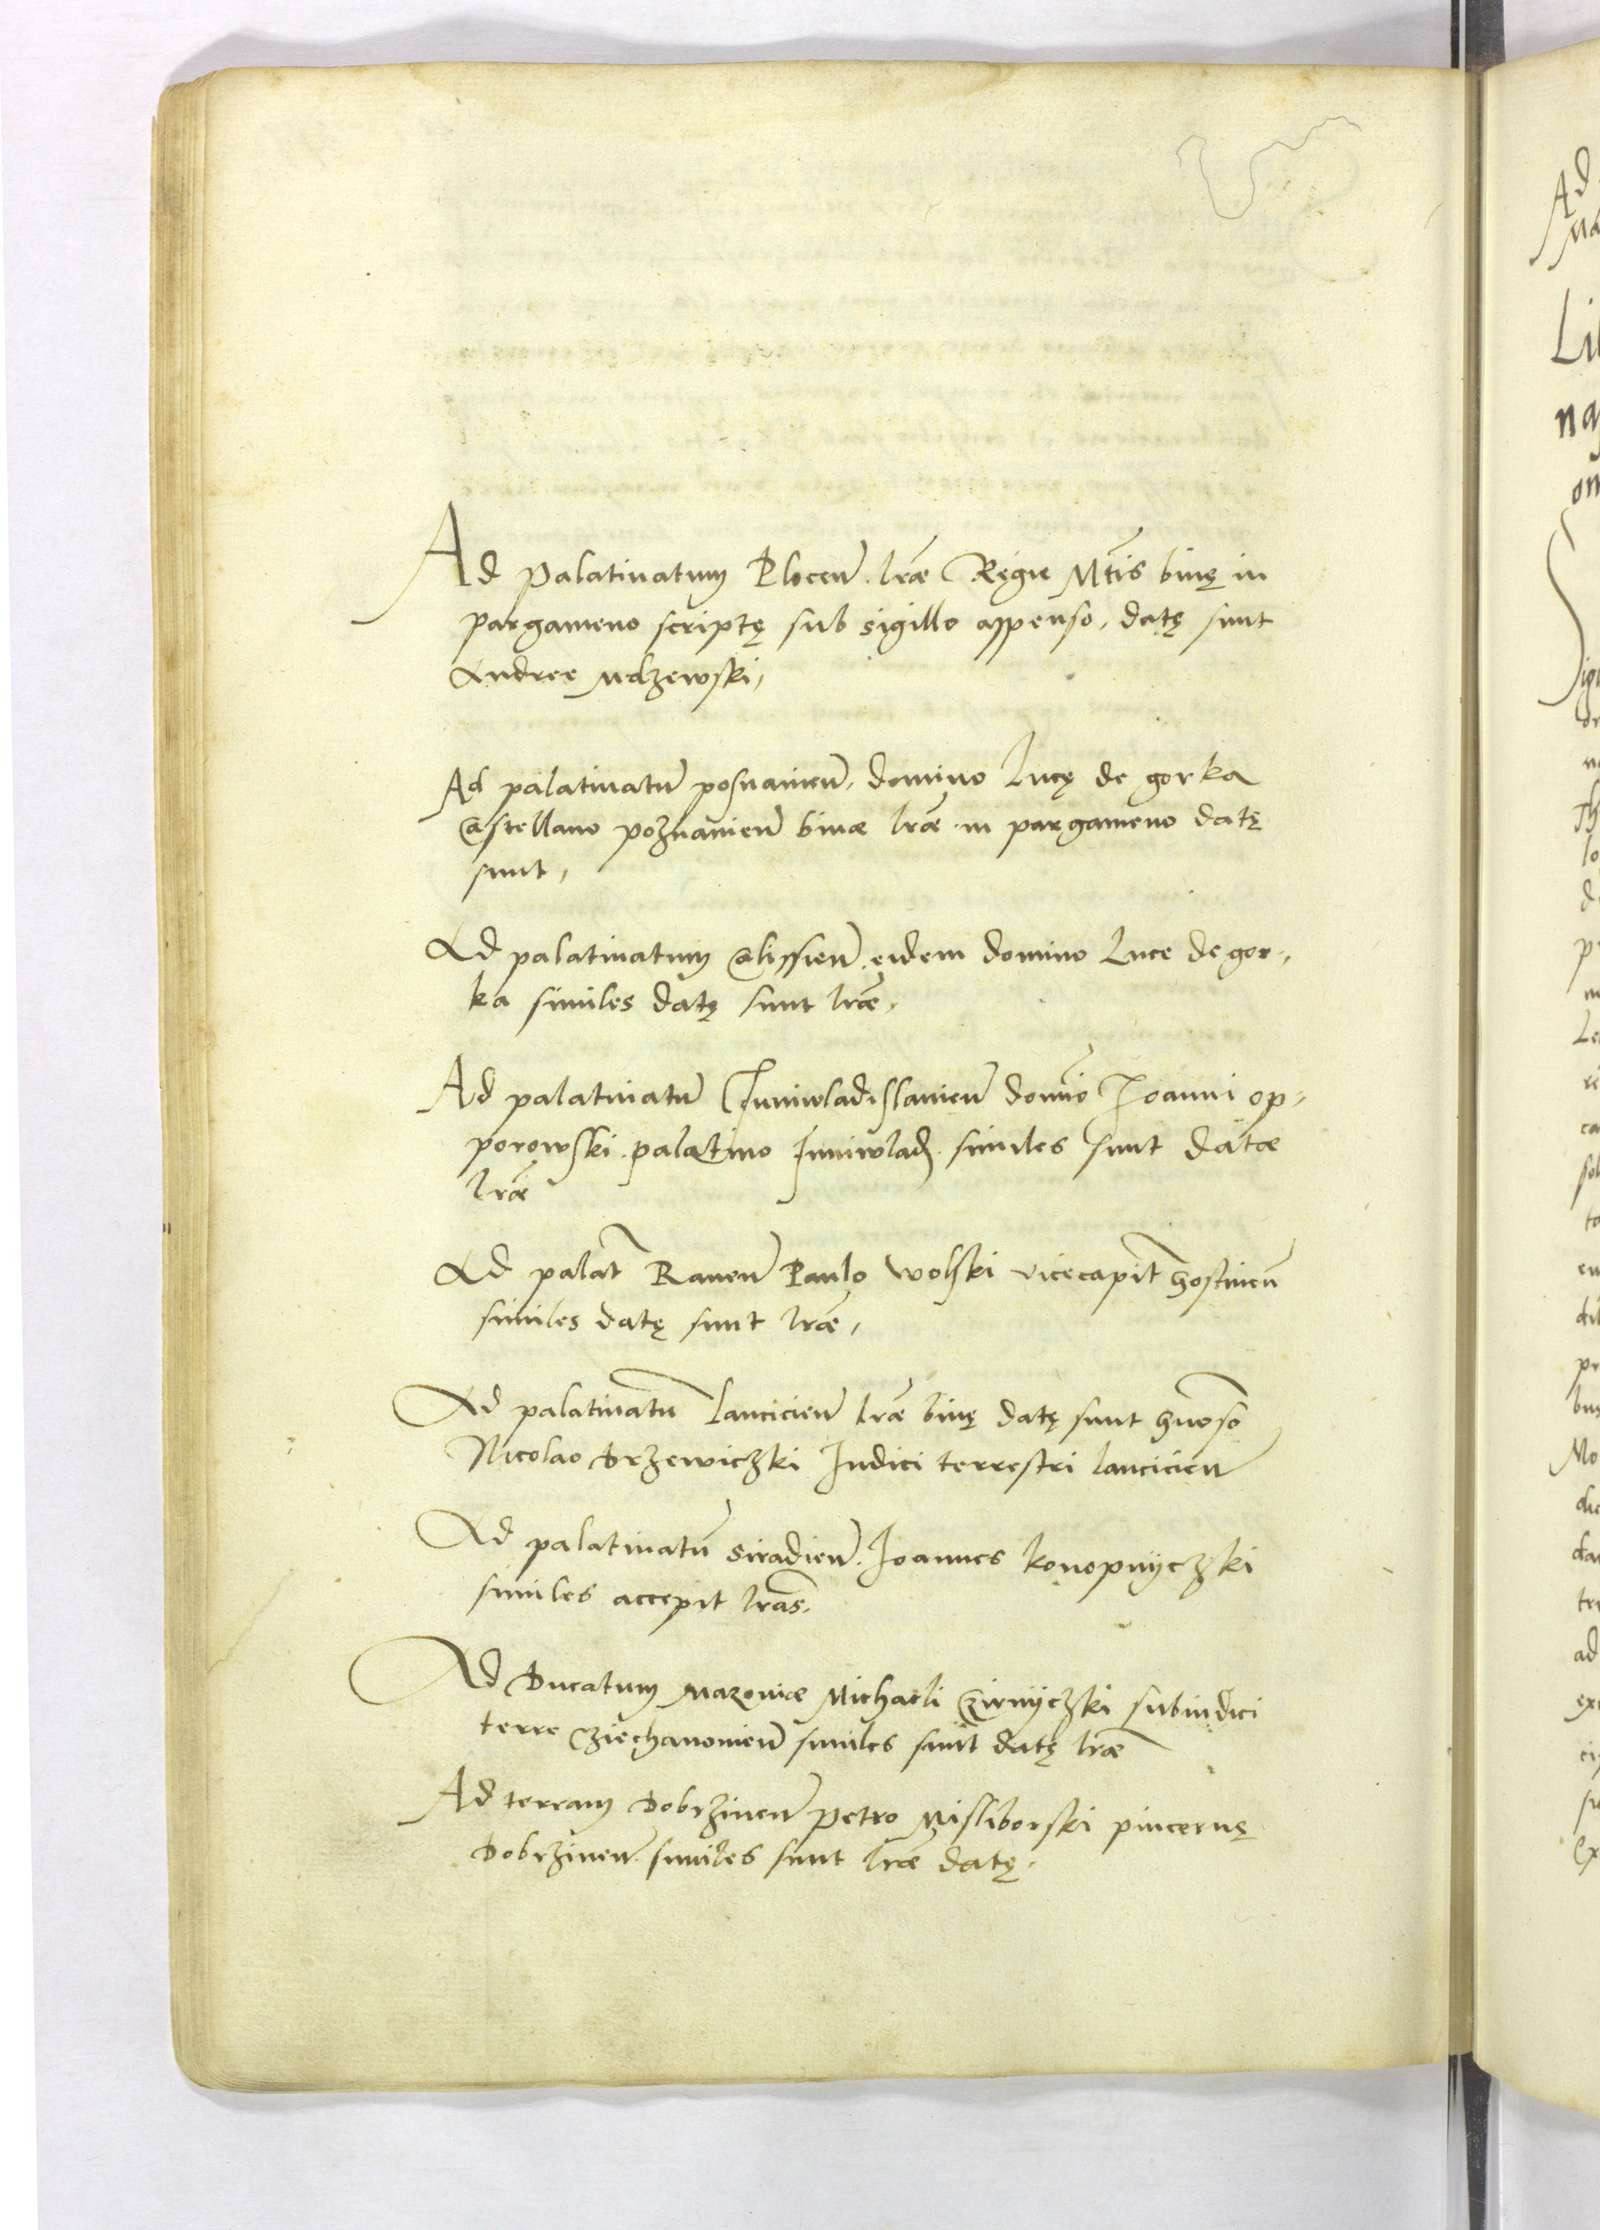 Ad Palatinatum Plocen̄. lr̄æ Regie Mt̄is binę in
pargameno scriptę sub sigillo appenso, datę sunt
Andree Mdzewski,
Ad palatinatū posnanien̄, domino Lucę de gorka
Castellano poznanien̄ binæ lr̄æ in pargameno datę
sunt,
Ad palatinatum Calissien̄. eidem domino Luce de gor-
ka similes datę sunt lr̄æ,
Ad palatinatū Juniwladislauien̄ domīo Joanni op-
porowski palatino Juniwlad. similes sunt datæ
lr̄æ
Ad palat̄ Rauen̄ Paulo wolski vicecapit̄ gostinen̄
similes datę sunt lr̄æ,
Ad palatinatū lancicien̄ lr̄æ binę datę sunt gn̄oso
Nicolao Drzewiczki Judici terrestri lancicien̄
Ad palatinatū siradien̄. Joannes konopnyczki
similes accepit lr̄as,
Ad Ducatum Mazouiæ Michaeli Czirnyczki subiudici
terre Cziechanouien̄ similes sunt datę lr̄æ
Ad terram Dobrzinen̄ Petro Misliborski pincernę
Dobrzinen̄ similes sunt lr̄æ datę.